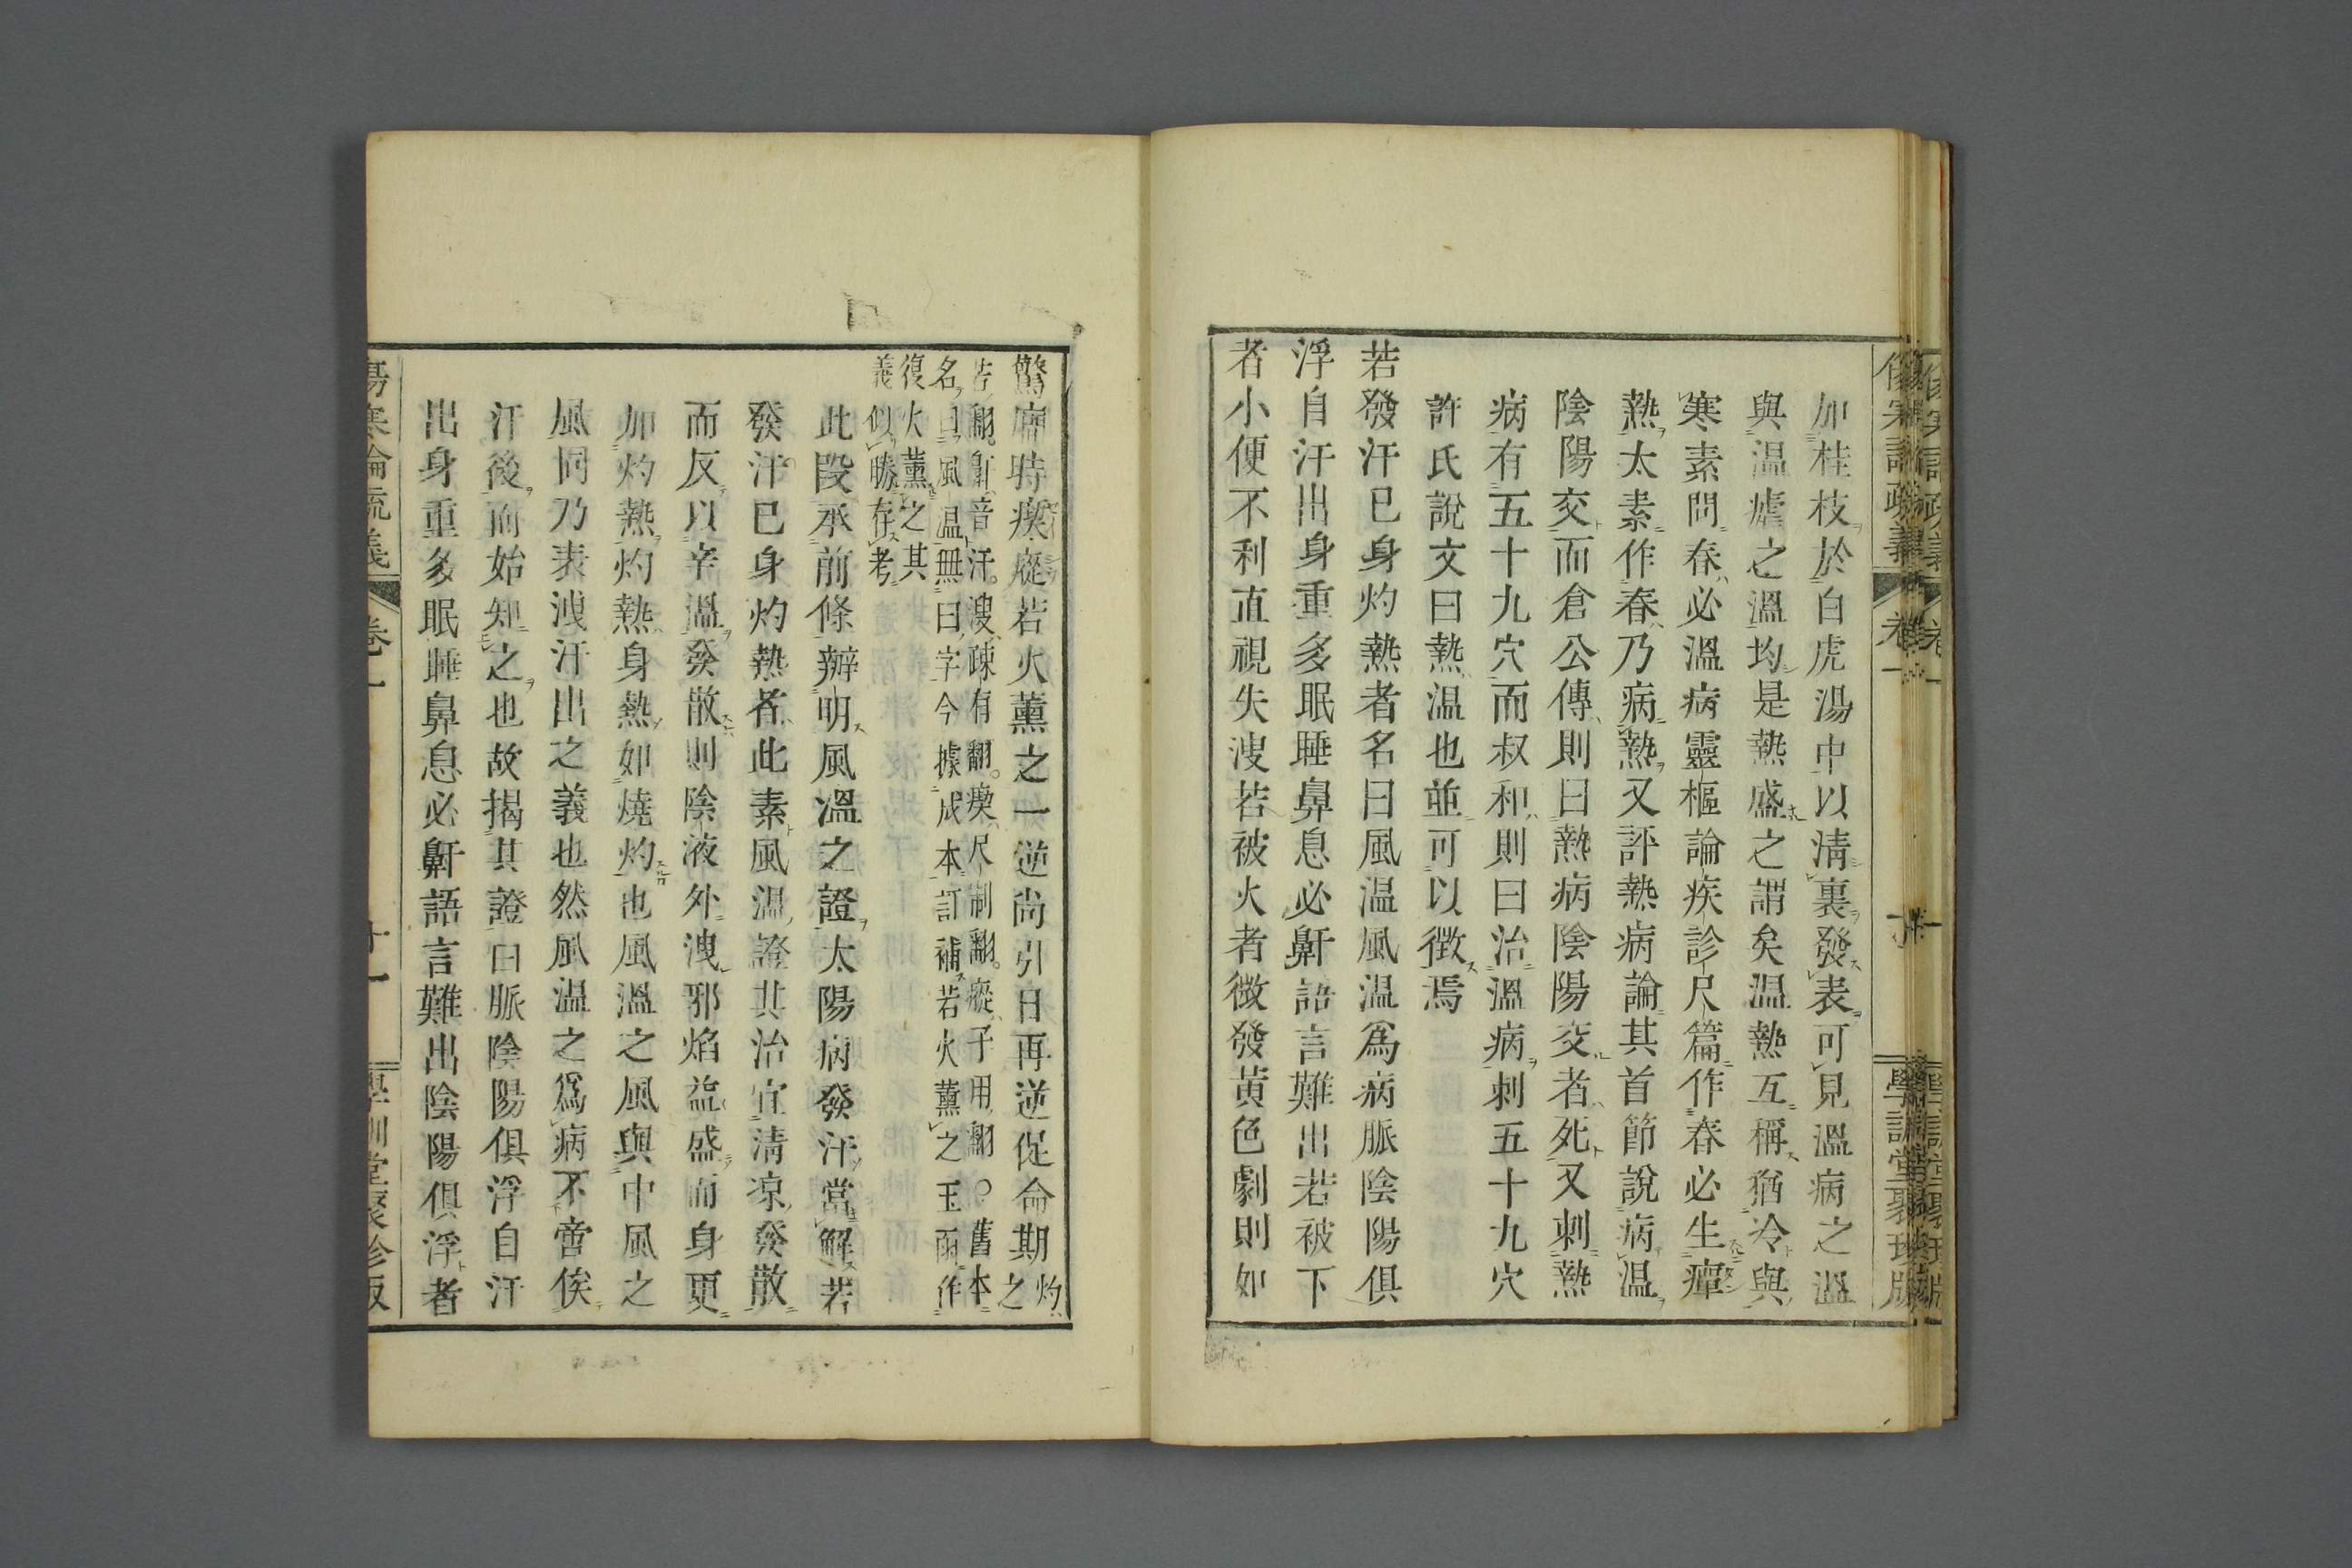 加桂枝於白虎湯中以淸裏發表可見溫病之溫
與温瘧之溫均是熱盛之謂矣温熱互稱猶冷與
寒素問春必溫病靈樞論疾診尺篇作春必生癉
熱太素作春乃病熱又評熱病論其首節說病温
陰陽交而倉公傳則曰熱病陰陽交者死又刺熱
病有五十九穴而叔和則曰治溫病刺五十九穴
許氏說文曰熱温也並可以徴焉
若發汗已身灼熱者名曰風温風温爲病脈陰陽俱
浮自汗出身重多眠睡鼻息必鼾語言難出若被下
者小便不利直視失溲若被火者微發黃色劇則如
驚癎時瘈瘲若火薰之一逆尚引日再逆促命期
灼之
若翻。鼾音汗。溲疎有翻。瘈尺制翻。瘲子用翻。○舊本
名曰風温無曰字今據成本訂補若火薰之玉函作
復火薰之其
義似勝存考
此段承前條辨明風溫之證太陽病發汗當解若
發汗已身灼熱者此素風温證其治宜淸凉發散
而反以辛溫發散則陰液外洩邪焰益盛而身更
加灼熱灼熱身熱如燒灼也風溫之風與中風之
風同乃表洩汗出之義也然風温之爲病不啻俟
汗後而始知之也故揭其證曰脈陰陽俱浮自汗
出身重多眠睡鼻息必鼾語言難出陰陽俱浮者
傷寒論疏義
卷一
十一
學訓堂聚珍版